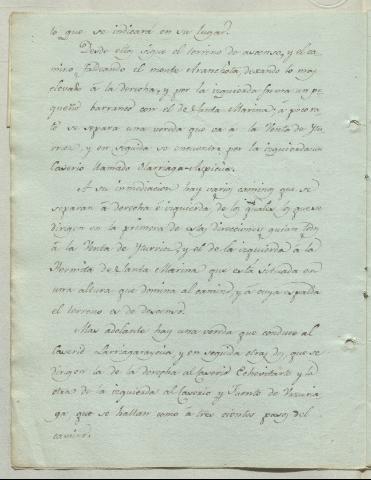 to que se indicará en su lugar.
Desde ellos sigue el terreno de ascenso, y el ca-
mino faldeando el monte dexando lo mas
elevado á la derecha, y por la izquierda forma un pe-
queño barranco con el de Santa Marina: á poco ra-
to se separa una vereda que va á la Venta de Ytu-
rrioz, y en seguida se encuentra por la izquierda un
Caserio llamado Olarriaga-Aspicua.
A su inmediacion hay varios caminos que se
separan á derecha é izquierda, de los quales los que se
dirigen en la primera de estas direcciones guian todos
á la Venta de Yturrioz, y el de la izquierda á la
Hermita de Santa Marina que está situada en
una altura que domina al camino, y á cuya espalda
el terreno es de descenso.
Mas adelante hay una vereda que conduce al
Caserio Larriagaraycua, y en seguida otras dos que se
dirigen la de la derecha al Caserio Echevidarte y la
otra de la izquierda al Caserio y Fuente de
ga que se hallan como á tres cientos pasos del
camino.